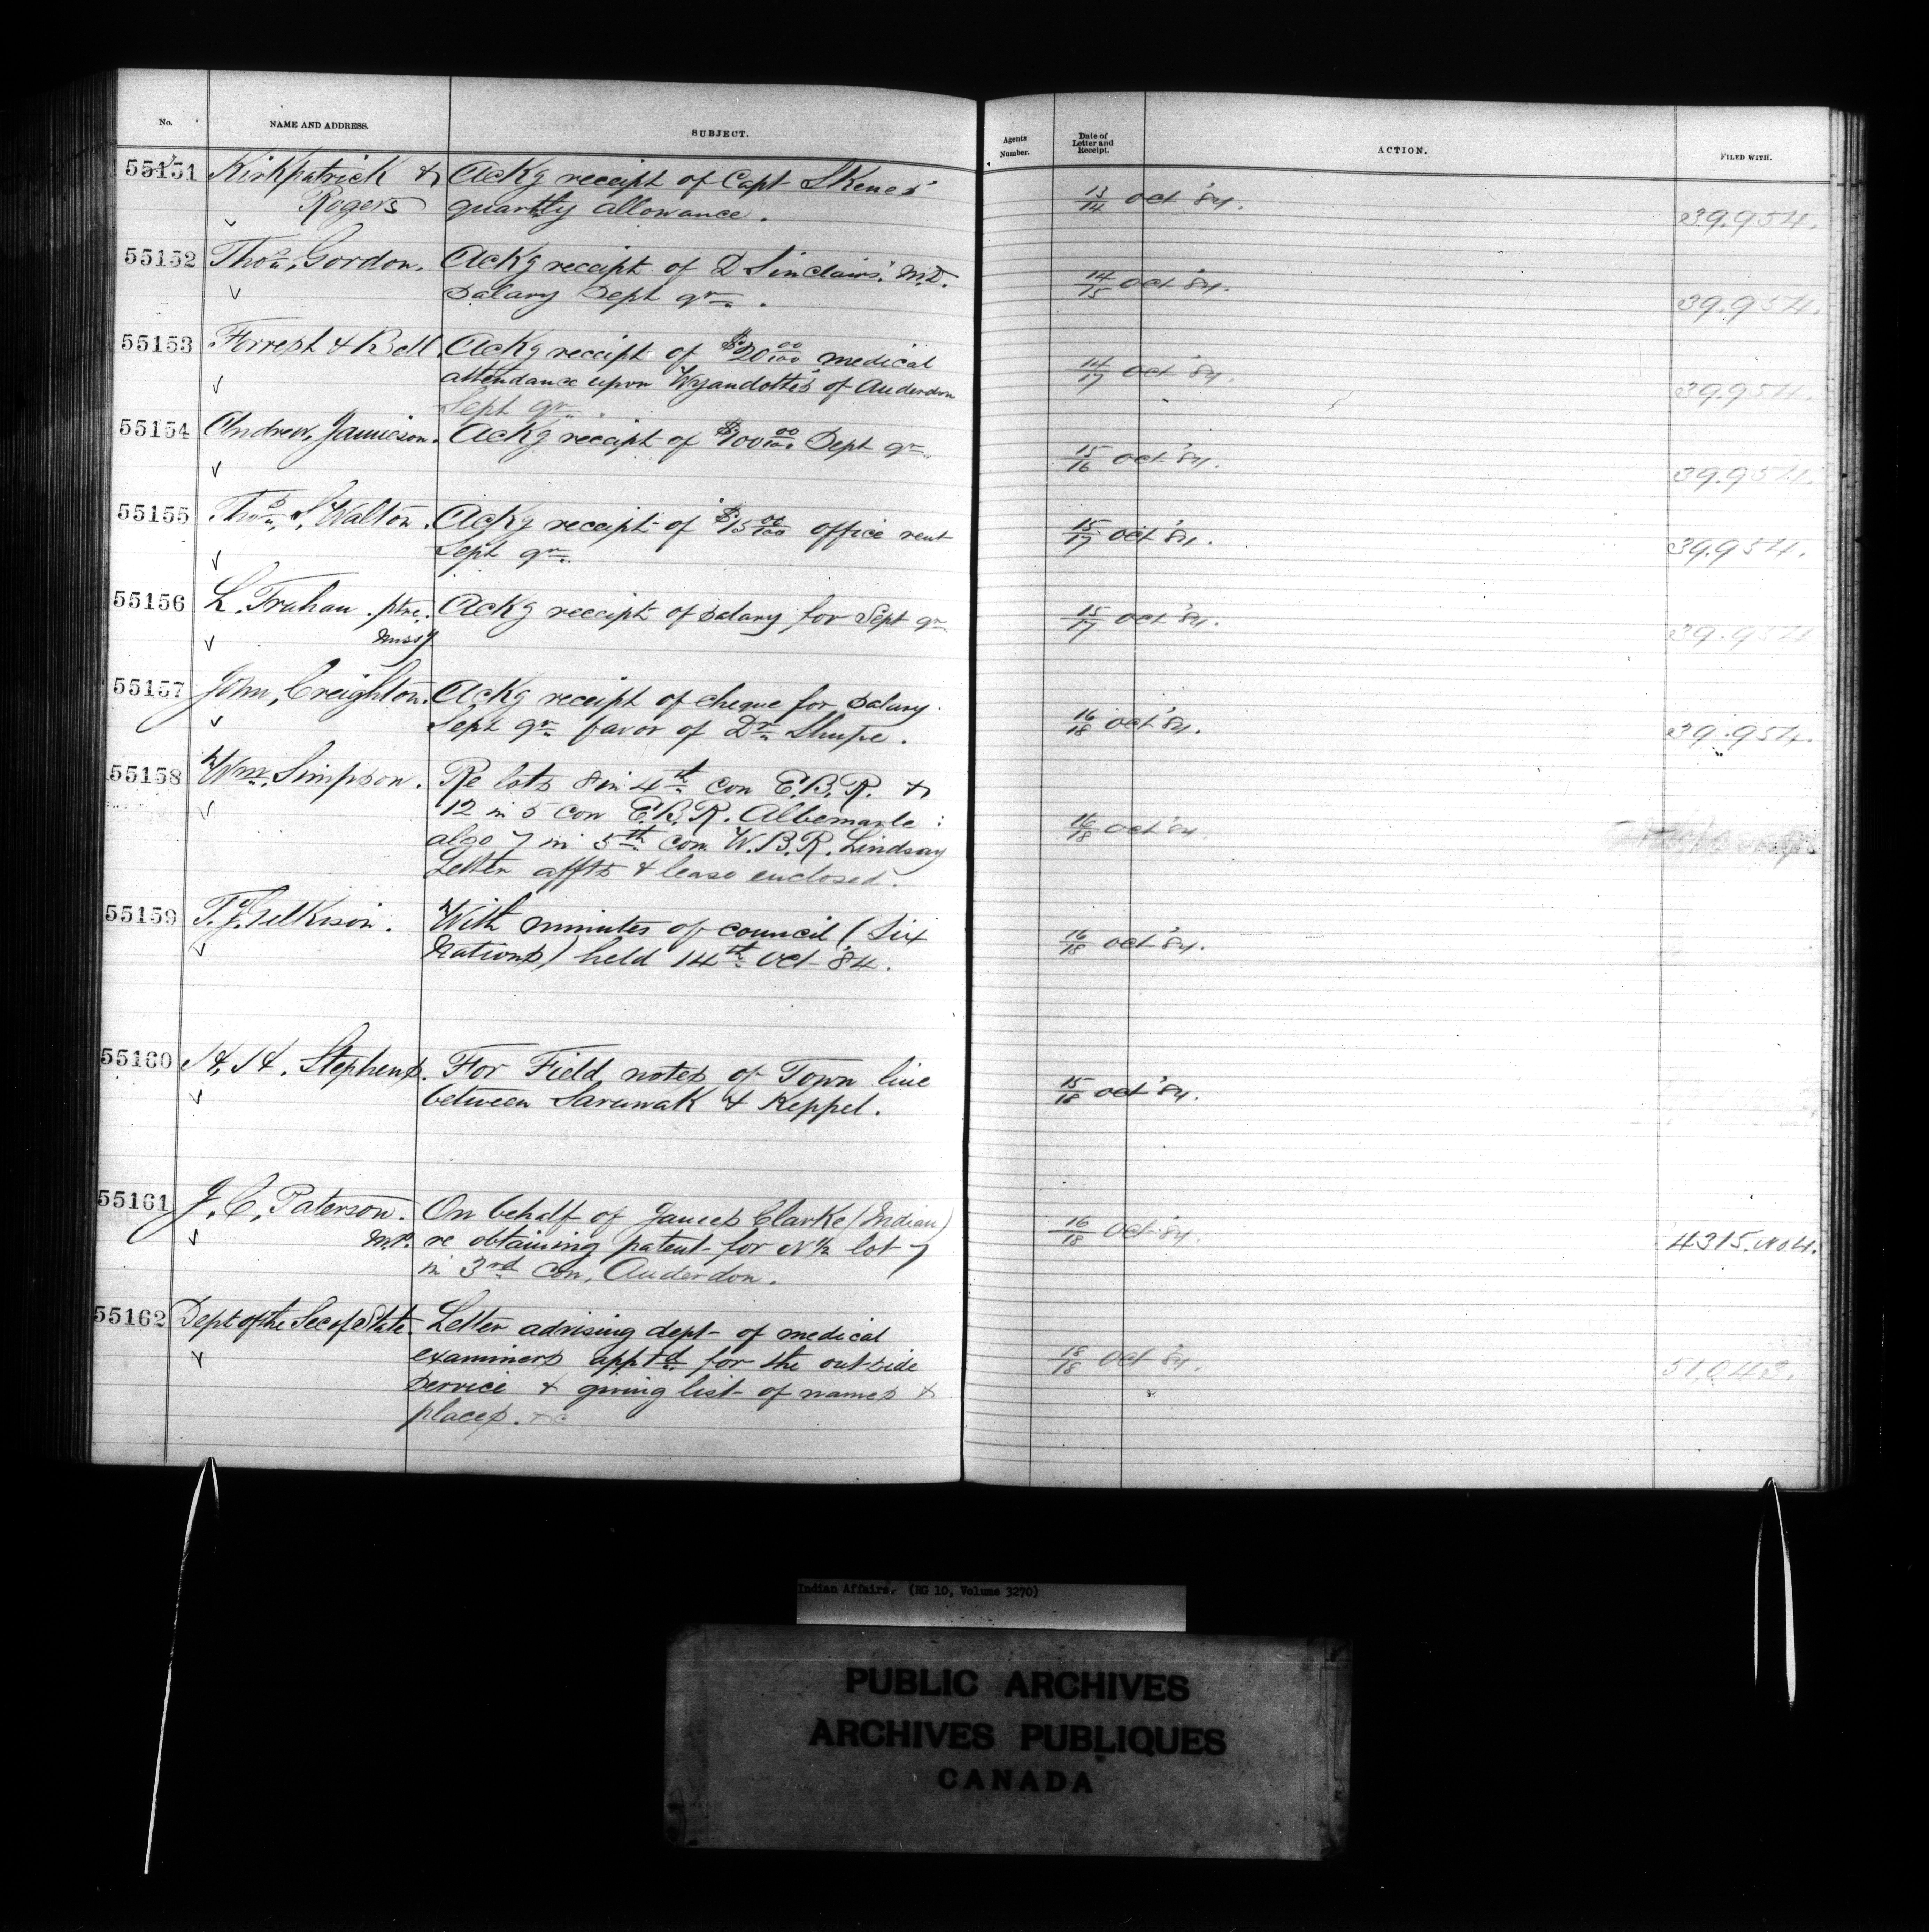 No. NAME AND ADDRESS. SUBJECT. Agents Number. Date of Letter and Receipt. ACTION. FILED WITH.
55151 Kirkpatrick & Ackg receipt of Capt Skenes' 13/14 Oct '84. 39.954.
Rogers quartly allowance.
55152 Thos. Gordon. Ackg receipt of D Sinclairs. M.D. 14/15 Oct '84. 39.954.
Salary Sept qr.
55153 Forrest & Bell. Ackg receipt of $20 00/100 medical 14/17 Oct '84. 39.954.
attendance upon Wyandotte's of Anderdon
Sept qr.
55154 Andrew, Jamieson. Ackg receipt of $100 00/100 Sept qr. 15/16 Oct '84. 39.954.
55155 Thos. S. Walton. Ackg receipt of $15 00/100 office rent 15/17 Oct '84. 39.954.
Sept qr.
55156 L. Trahan. ptre. Ackg receipt of salary for Sept qr. 15/17 Oct '84. 39.954
Missy
55157 John, Creighton. Ackg receipt of cheque for salary. 16/18 Oct '84. 39.954.
Sept qr. favor of Dr. Shupe.
55158 Wm. Simpson. Re lots 8 in 4th con E.B.R. & 16/18 Oct '84.
12 in 5 con E.B.R. Albemarle:
also 7 in 5th con. W.B.R. Lindsay
Letter affts & lease enclosed.
55159 J. T. Gilkison. With minutes of council (Six 16/18 Oct '84.
Nations) held 14th Oct '84.
55160 H. H. Stephens. For Field notes of Town line 15/18 Oct '84.
between Sarawak & Keppel.
55161 J. C. Paterson. On behalf of James Clarke (Indian) 16/18 Oct '84. 4315. No. 4.
M.P. re obtaining patent for N ½ lot 7
in 3rd con, Anderdon.
55162 Dept of the Sec of State. Letter advising dept of medical 18/18 Oct '84. 51,043.
examiners apptd. for the outside
service & giving list of names &
places. &c
Indian Affairs. (RG 10, Volume 3270)
PUBLIC ARCHIVES
ARCHIVES PUBLIQUES
CANADA